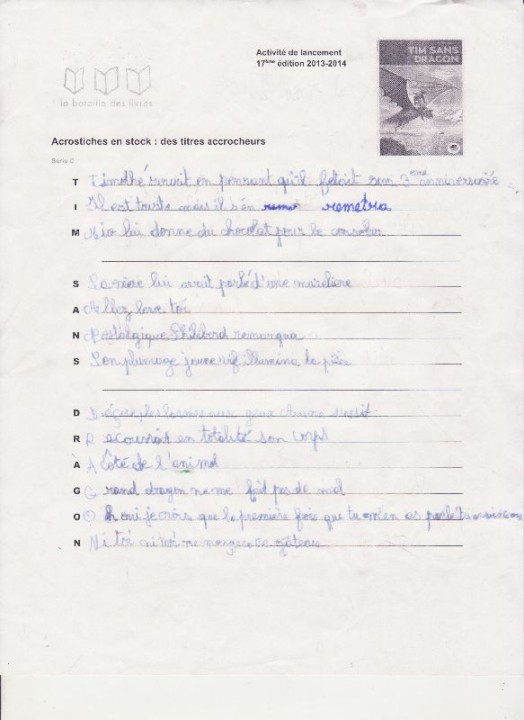 Activité de lancement
17ème édition 2013-2014
TIM SANS
DRAGON
la bataille des livres
Acrostiches en stock : des titres accrocheurs
Série C
T Timothé en pensant qu'il fetait ses 3eme anniversaire
I Il est triste mais il s'en remetra
M lui donne du chocolat pour le consoler
S La mère lui avait parlé d'une
A Allez leve toi
N Nostalgique remarqua
S Son plumage jaune vif illumina la
D les larmes aux yeux
R Recouvrait en totalité son corps
À A côté de l'animal
G Grand dragon ne me fait pas de mal
O Oh oui je crois que la première fois que tu m'en as parlé
N Ni toi ni moi ne